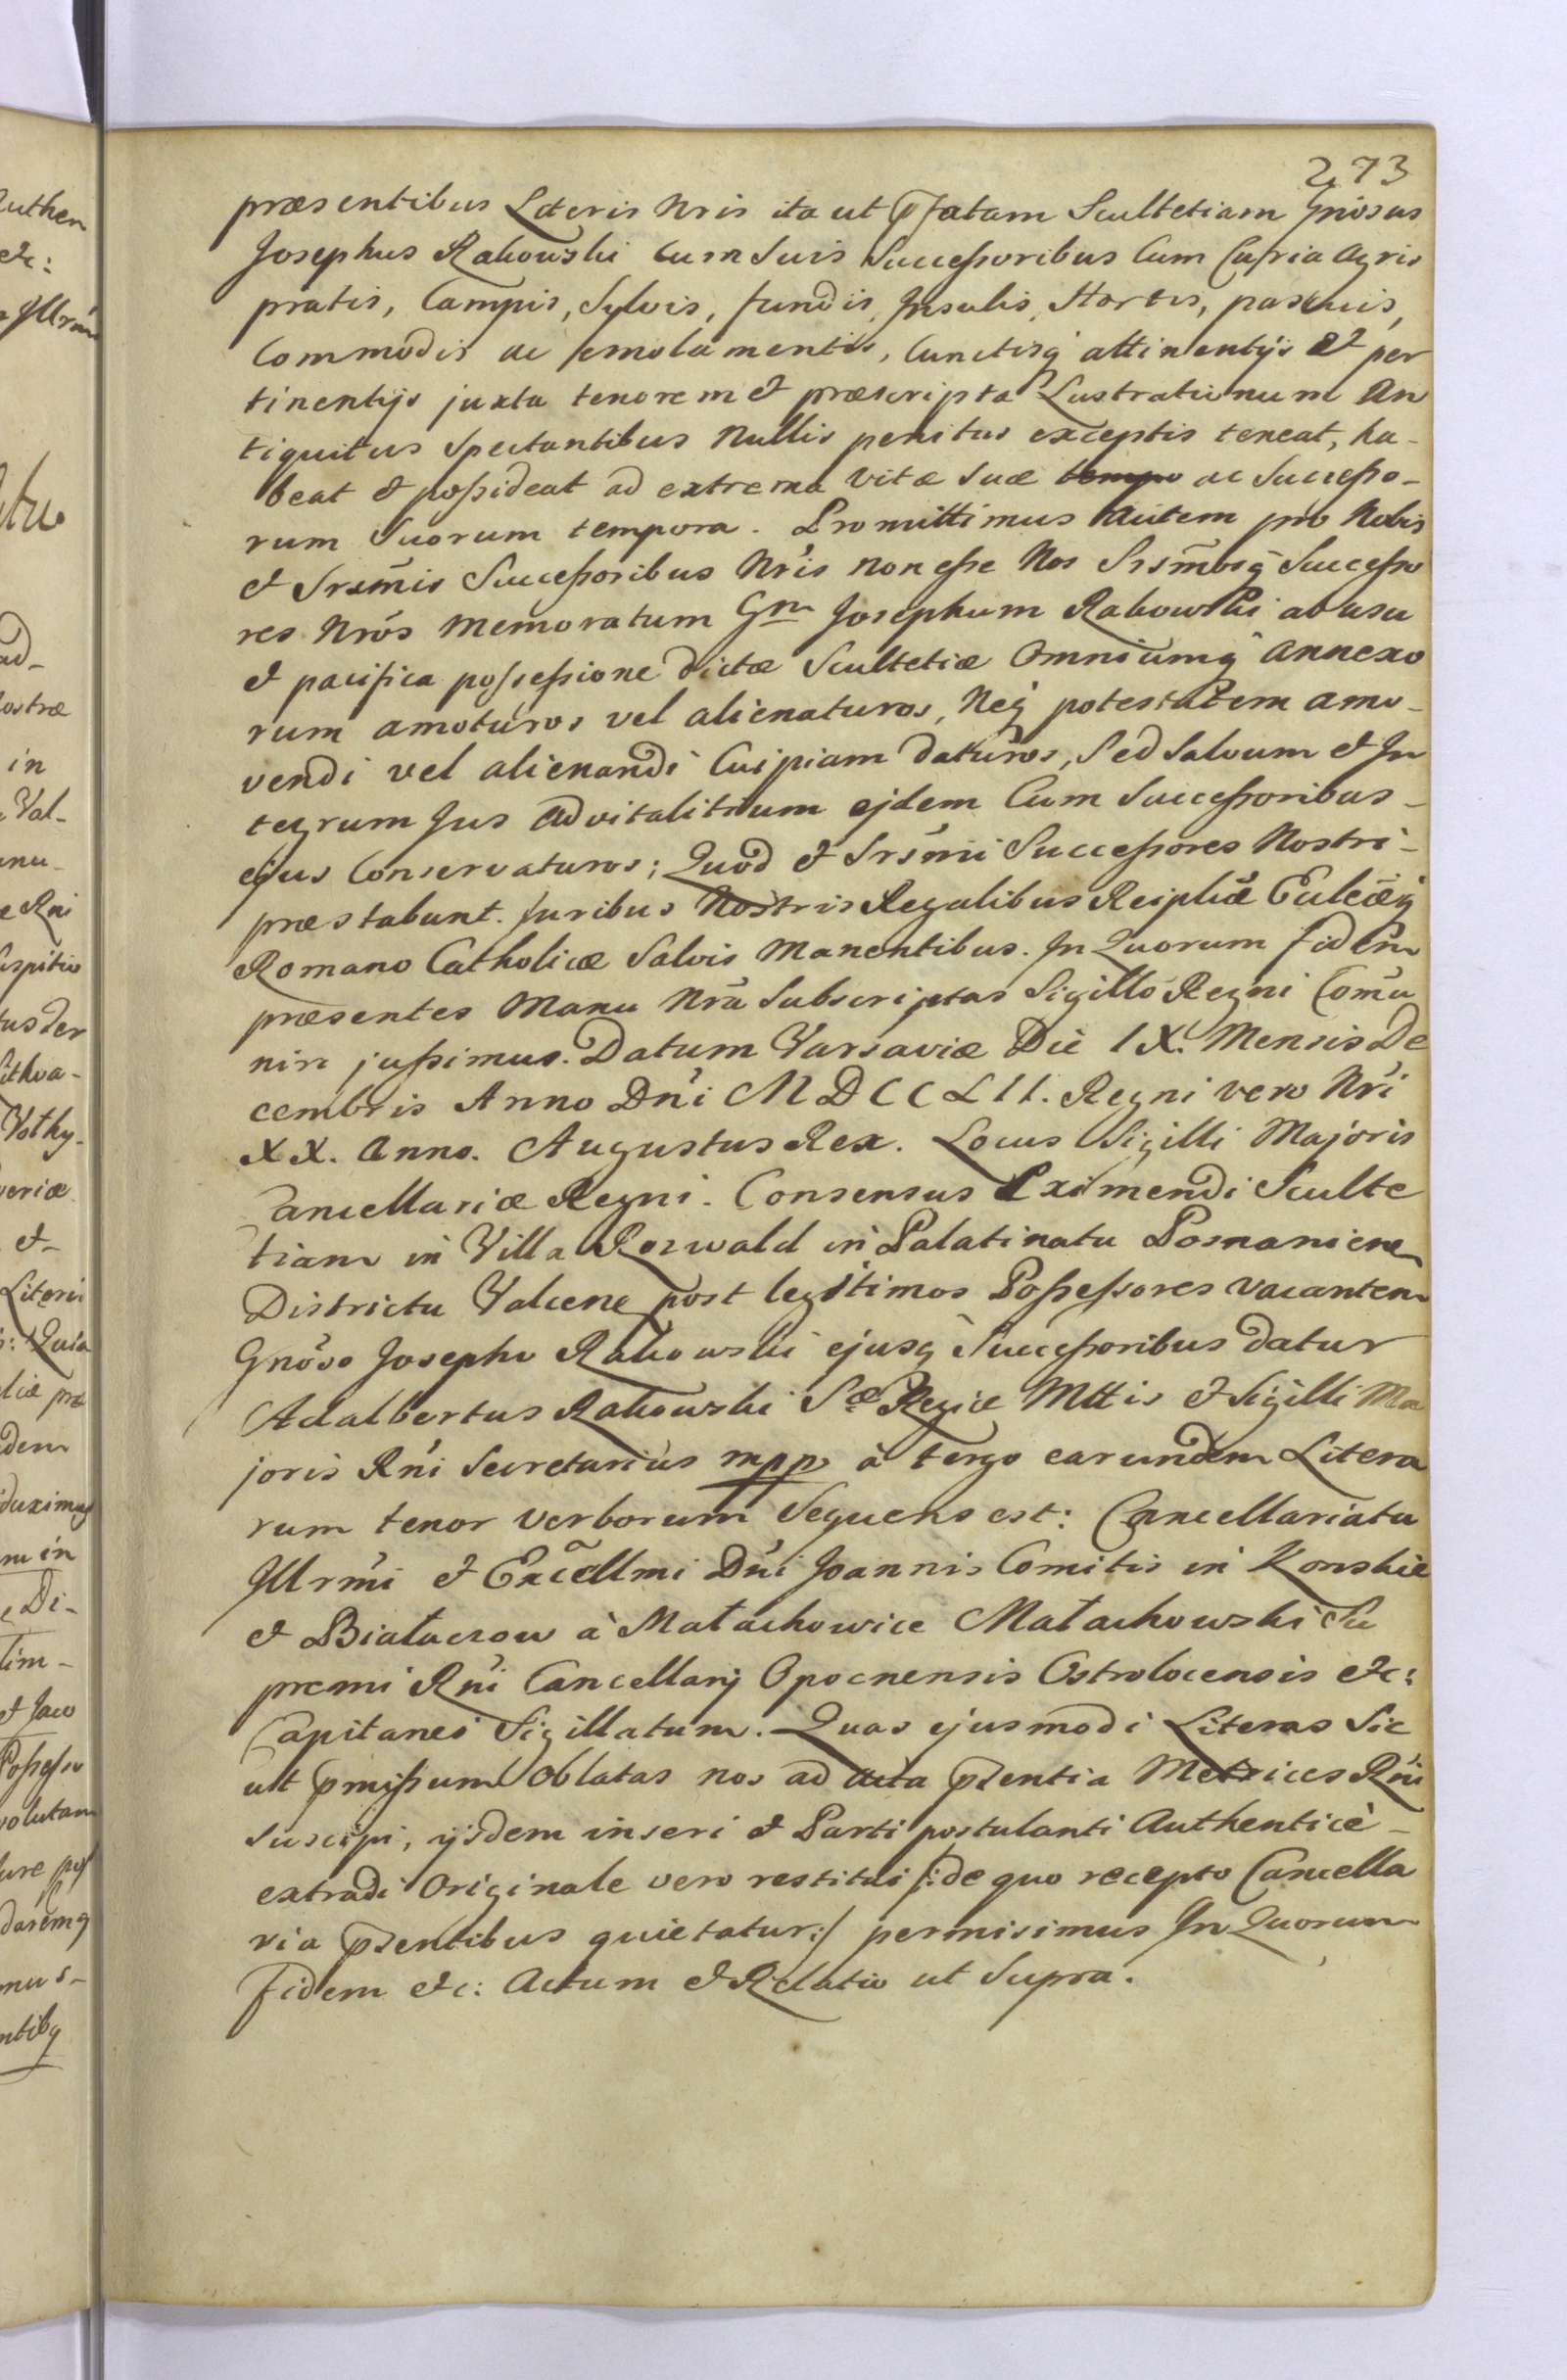 273
præsentibus Literis Nris ita ut pfatam Scultetiam Gnosus
Josephus Rakowski cum Suis Succeßoribus Cum Curia Agris
pratis, Campis, Sylvis, fundis, Insulis, Hortis, pascuis,
Commodis ac emolumentis, Cunctisq attinentijs et per
tinentijs juxta tenorem et præscripta Lustrationum An
tiquitus Spectantibus Nullis penitus exceptis teneat, ha-
beat et poßideat ad extrema vitæ suæ tempo ac Succeßo-
rum Suorum tempora. Promittimus Autem pro Nobis
et Srsmis Succeßoribus Nris non eße Nos Srsmosq Succeßo
res Nros Memoratum Gm Josephum Rakowski ab usu
et pacifica poßeßione dictæ Scultetiæ Omniumq annexo
rum amoturos vel alienaturos, Neq potestatem amo-
vendi vel alienandi Cuipiam daturos, Sed Salvum et In
tegrum Jus advitalitium ejdem Cum Succeßoribus-
ejus Conservaturos; Quod et Srsmi Succeßores Nostri-
præstabunt. Juribus Nostris Regalibus Reiplicæ Eccleæq
Romano Catholicæ Salvis Manentibus. In Quorum fidem
præsentes Manu Nra Subscriptas Sigillo Regni Comu
niri jußimus. Datum Varsaviæ Die IX. Mensis De
cembris Anno Dni MDCCLII. Regni vero Nri
XX. Anno. Augustus Rex. Locus Sigilli Majoris
Cancellariæ Regni. Consensus Eximendi Sculte
tiam in Villa Rozwald in Palatinatu Posnaniene
Districtu Valcene post legitimos Poßeßores vacantem
Gnoso Josepho Rakowski ejusq Succeßoribus datur
Adalbertus Rakowski Sæ Regiæ Mttis et Sigilli Ma
joris Rni Secretarius mpp à tergo earundem Litera
rum tenor verborum Sequens est: Cancellariatu
Illrmi et Excellmi Dni Joannis Comitis in Konskie
et Białaczow à Małachowice Małachowski Su
premi Rni Cancellarij Opocnensis Ostrolocensis etc:
Capitanei Sigillatum. Quas ejusmodi Literas Sic
ut pmißum Oblatas nos ad Acta pzentia Metrices Rni
suscipi, ijsdem inseri et Parti postulanti Authenticè-
extradi Originale vero restitui /:de quo recepto Cancella
ria pzentibus quietatur:/ permisimus In Quorum
fidem etc: Actum et Relatio ut Supra.